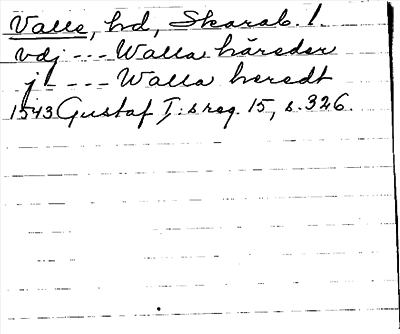 Valle, hd, Skarab. l.
vdj --- Walla häreder
j - - - Walla heredt
1543 Gustaf I:s reg. 15, s. 326.